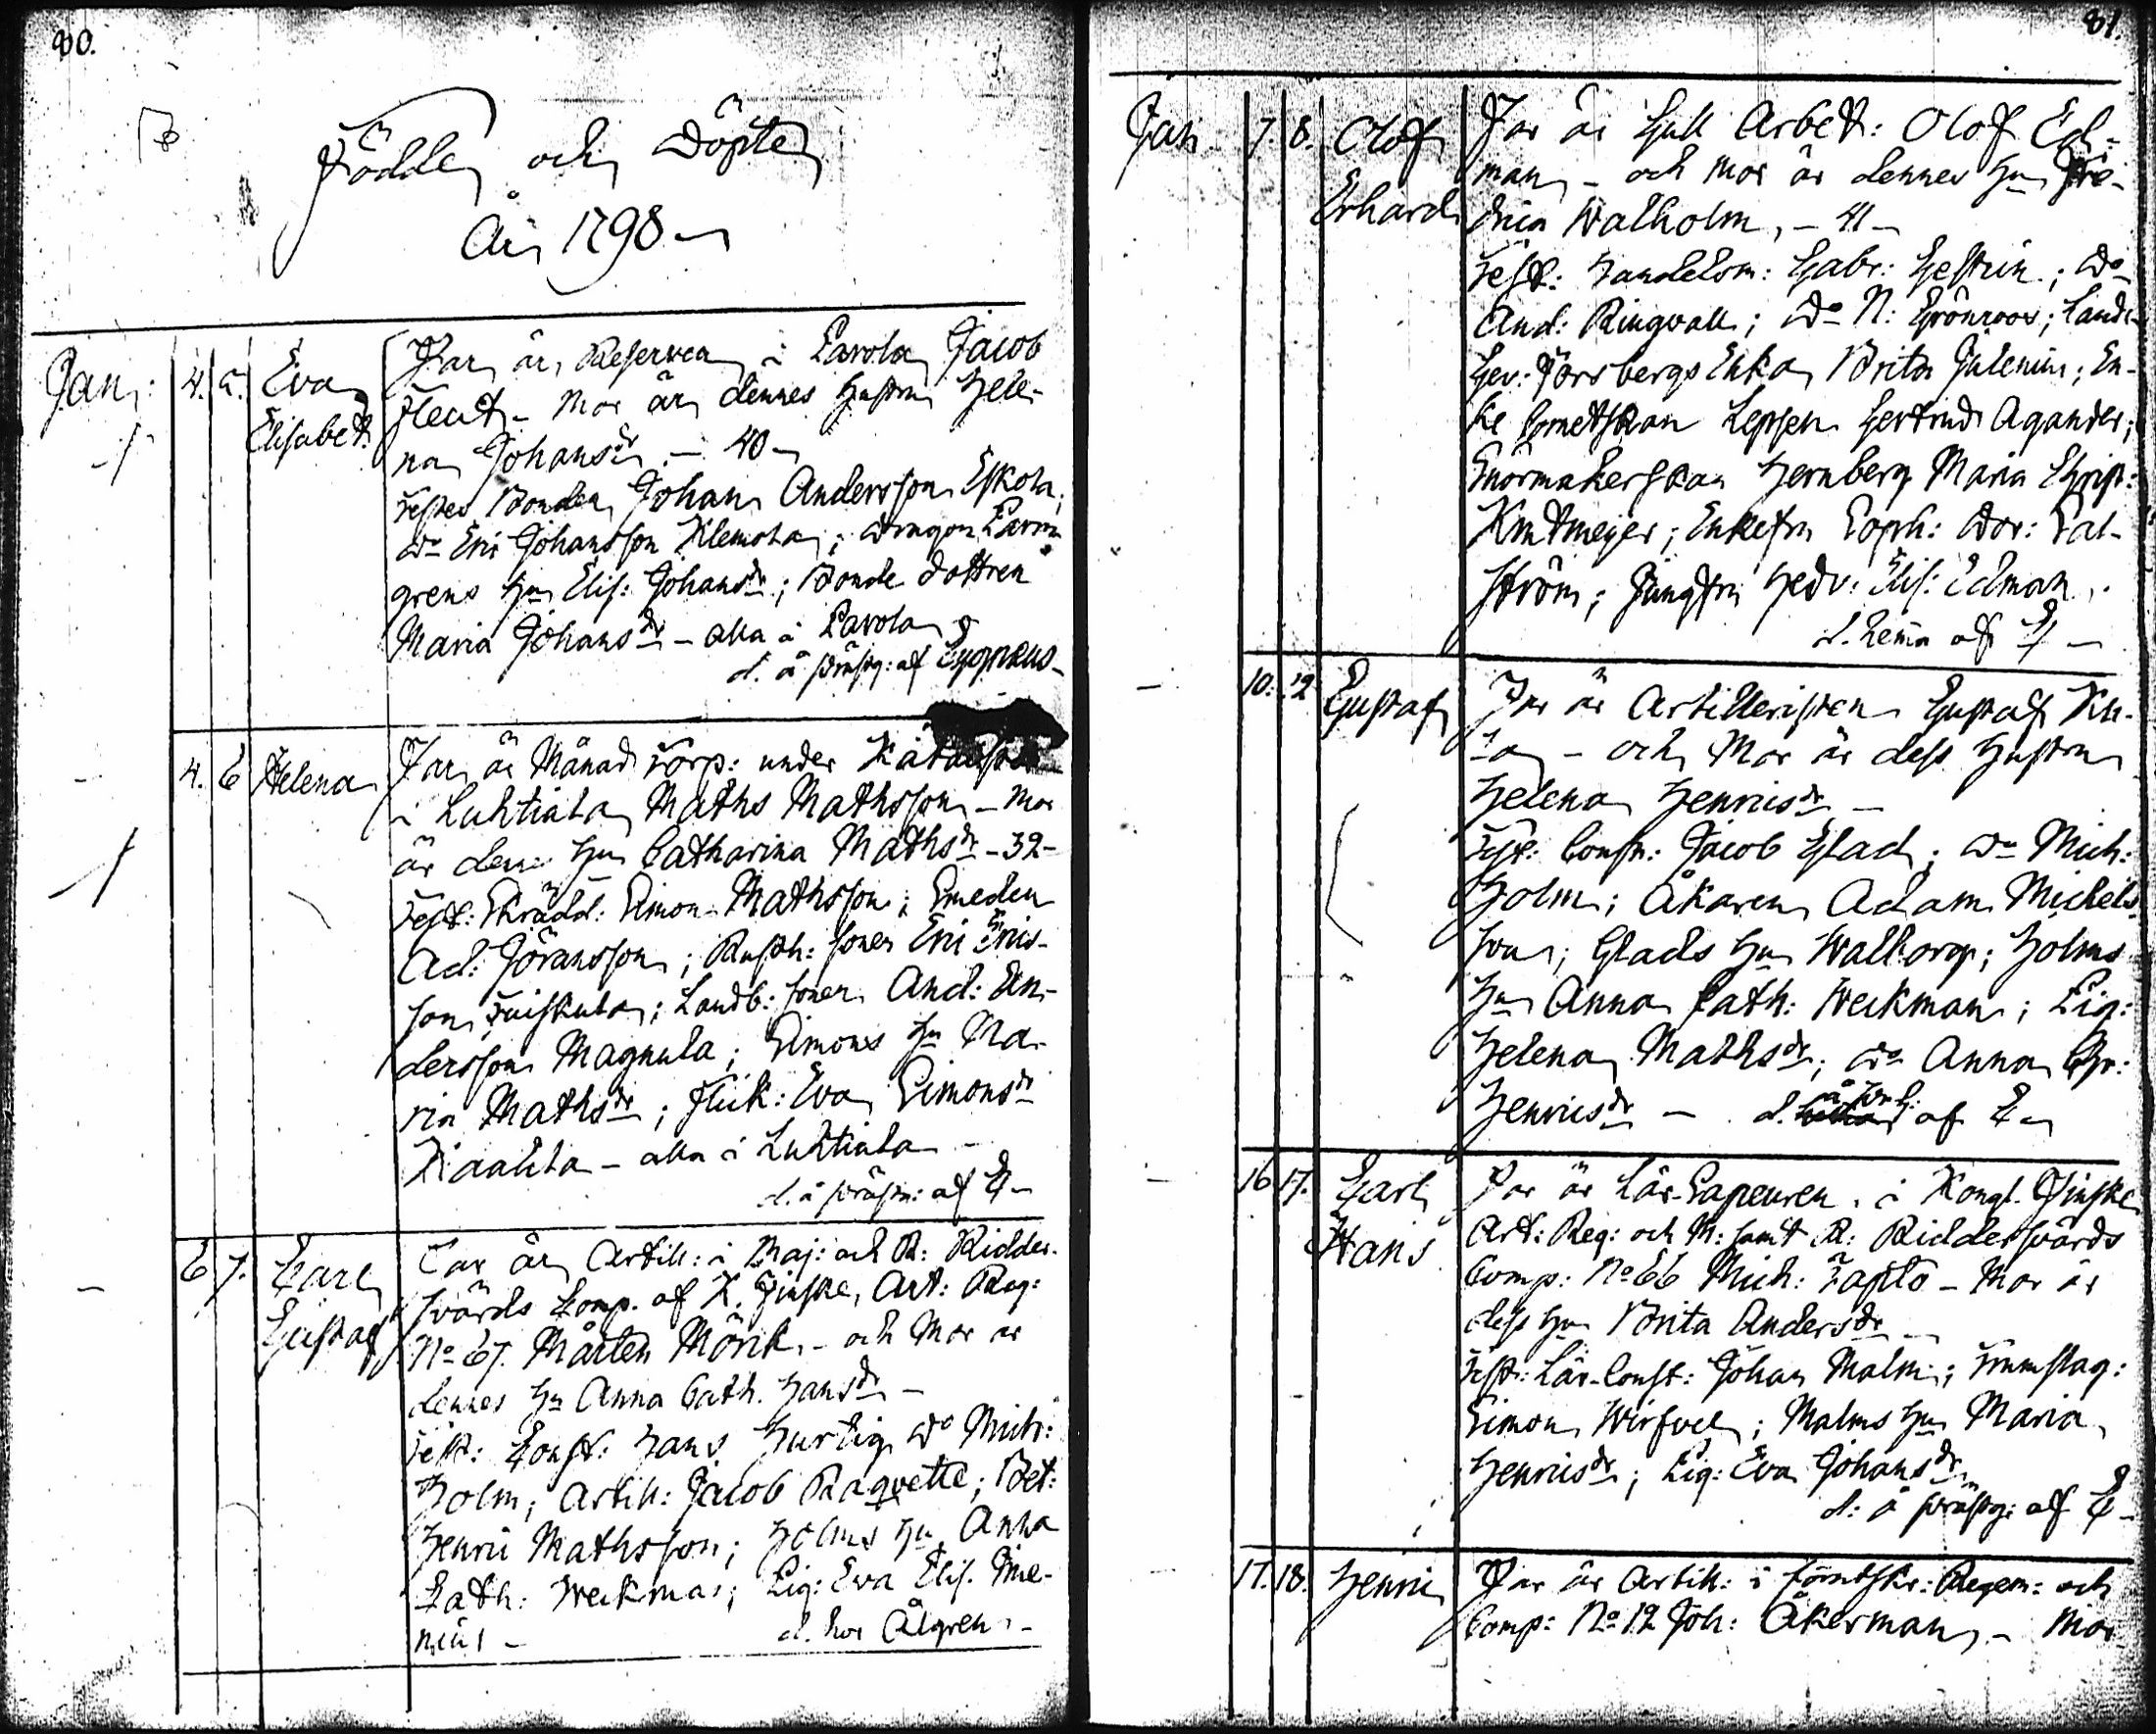 80.
Födde och Döpte
År 1798
Jan: 4. 5. Eva Elisabet
Far är, Reserven i Parola Jacob
Fleut - Mor är dennes Hustru Hele-
na Johansdr - 40 -
Testes Bonden Johan Andersson Eskola,
Do Eric Johansson Klemola; Dragon Parm
grens Hu Elis: Johansdr; Bonde dottren
Maria Johansdr - alla i Parola
d. å prästg: af
4. 6 Helena
Far är Månads Torp: under
i Luhtiala Maths Mathsson - Mor
är dennes Hu Catharina Mathsdr - 32 -
Test: Skrädd: Simon Mathsson; Smeden
Ad: Jöransson; Rusth: sonen Eric Erics-
son; Landb: sonen And: An-
dersson Magnula; Simons Hu Ma-
ria Mathsdr; flick: Eva Simonsdr
- alla i Luhtiala -
d. å prästg: af E -
6 7. Carl Gustaf
Far är Artill: i Maj: och R: Ridder-
svärds Comp. af K. Finske, Art: Reg:
No 67. Mårten Mörk, - och Mor är
dennes Hu Anna Cath. Hansdr -
Test: Const: Hans Hurtig Do Mich:
Holm; Artill: Jacob Raquette; Bet:
Henric Mathsson; Holms Hu Anna
Cath: Weckman; Pig: Eva Elis. Ime-
nius -
d. hos Ålgren -
81.
Jan 7. 8. Olof Erhard
Far är Gull Arbet: Olof Ed-
man, - och Mor är dennes Hu Fre-
drica Walholm, - 41 -
Test: Handelsm: Gabr: Hestrin; Do
And: Ringvall; Do N: Grönroos; Lands
Gev: Forsbergs Enka Brita Julenius; En-
ke Cornetskan Leppen Gertrud Agander;
Snörmakerskan Hernberg Maria Christ:
Kmtmeijer; Enkefru Soph: Dor: Pal-
ström; Jungfru Hedv: Elis: Edman.
d. hema af E -
10. 12 Gustaf
Far är Artilleristen Gustaf
- och Mor är dess Hustru
Helena Henricsdr -
Test: Const: Jacob Glad; Do Mich:
Holm; Åkaren Adam Michels-
son; Glads Hu Walborg; Holms
Hu Anna Cath: Weckman; Pig:
Helena Mathsdr; Do Anna Chr:
Henricsdr - d. af E -
16 17. Carl Hans
Far är Lär-Sapeuren i Kongl. Finske
Art: Reg: och M: samt R: Riddersvärds
Comp: No 66 Mich: Tapto - Mor är
dess Hu Brita Andersdr -
Test: Lär-Const: Johan Malm; Trumslag:
Simon Wirfvel; Malms Hu Maria
Henricsdr; Pig: Eva Johansdr
d: å prästg: af E -
17. 18. Henric
Far är Artill: i förutskr: Regem: och
Comp: No 12 Joh: Åkerman - Mor